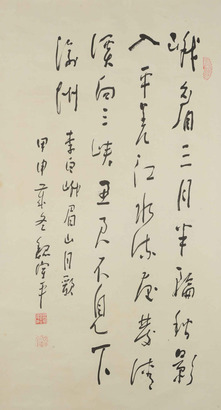 峨眉山月半輪秋影
入平羌江水流夜發清
溪向三峽思君不見下
渝州
李白峨眉山月歌
甲申歲冬